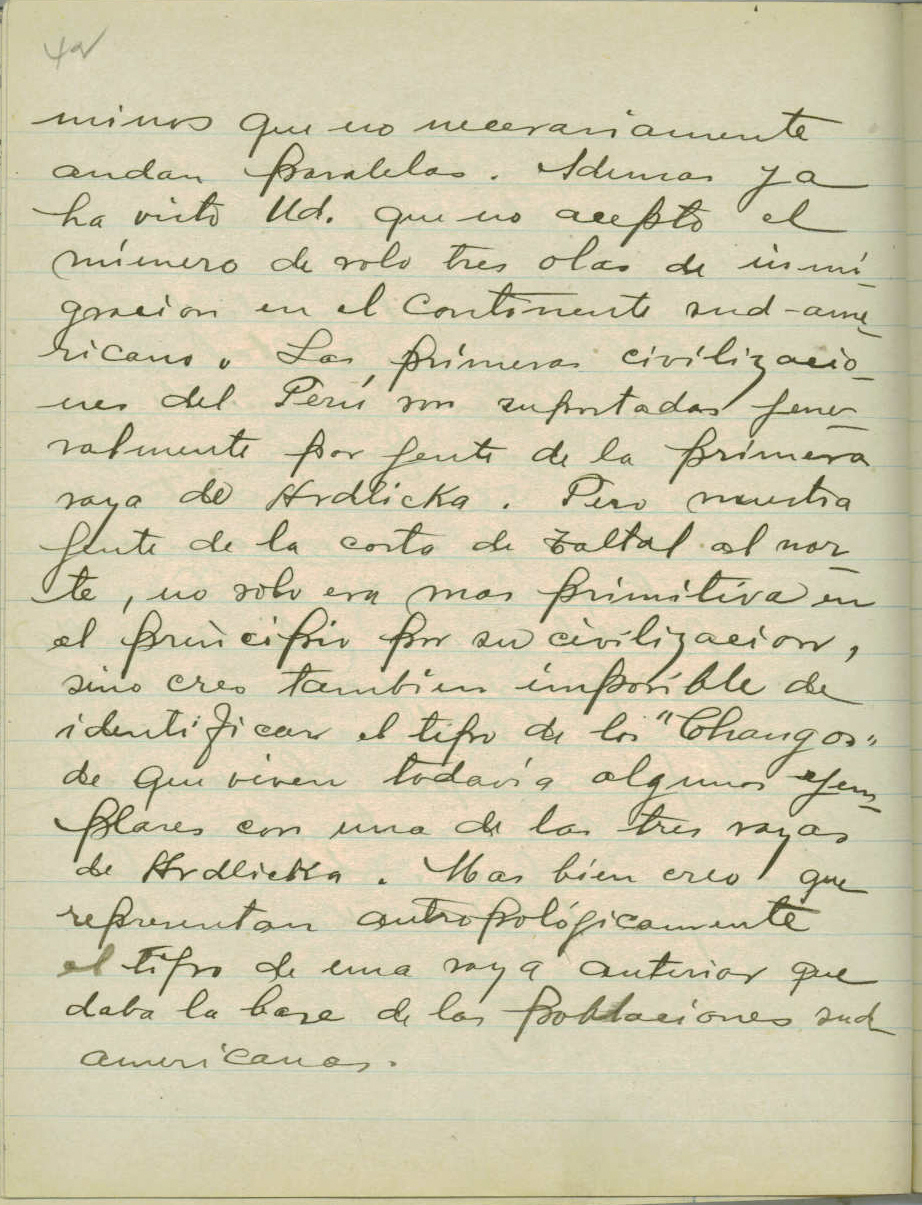 42
minos que no necerariamente
andan paralelas. Ademas ya
ha visto Ud. que no acepto el
número de solo tres olas de inmi-
gracion en el continente sud-ame-
ricano. Las primeras civilizacio-
nes del Perú son suportadas gene-
ralmente por gente de la primera
raza de Hrdlicka. Pero nuestra
gente de la costa de Taltal al nor-
te, no solo era mas primitiva en
el principio por su civilizacion,
sino creo tambien imposible de
identificar el tipo de los "Changos"
de que viven todavía algunos ejem-
plares con una de las tres razas
de Hrdlicka. Mas bien creo que
representan antropológicamente
el tipo de una raza anterior que
daba la base de las poblaciones sud
americanas.